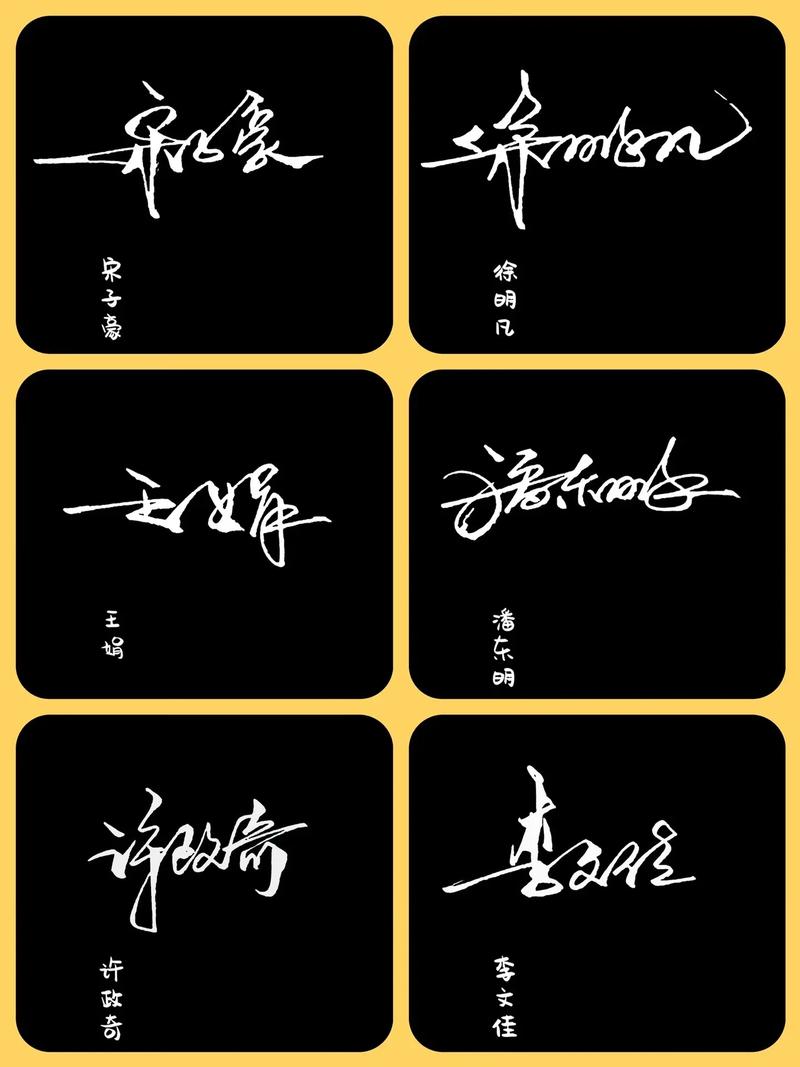 宋子豪
宋子豪
徐明凡
徐明凡
王娟
王娟
潘东明
潘东明
许政奇
许政奇
李文佳
李文佳